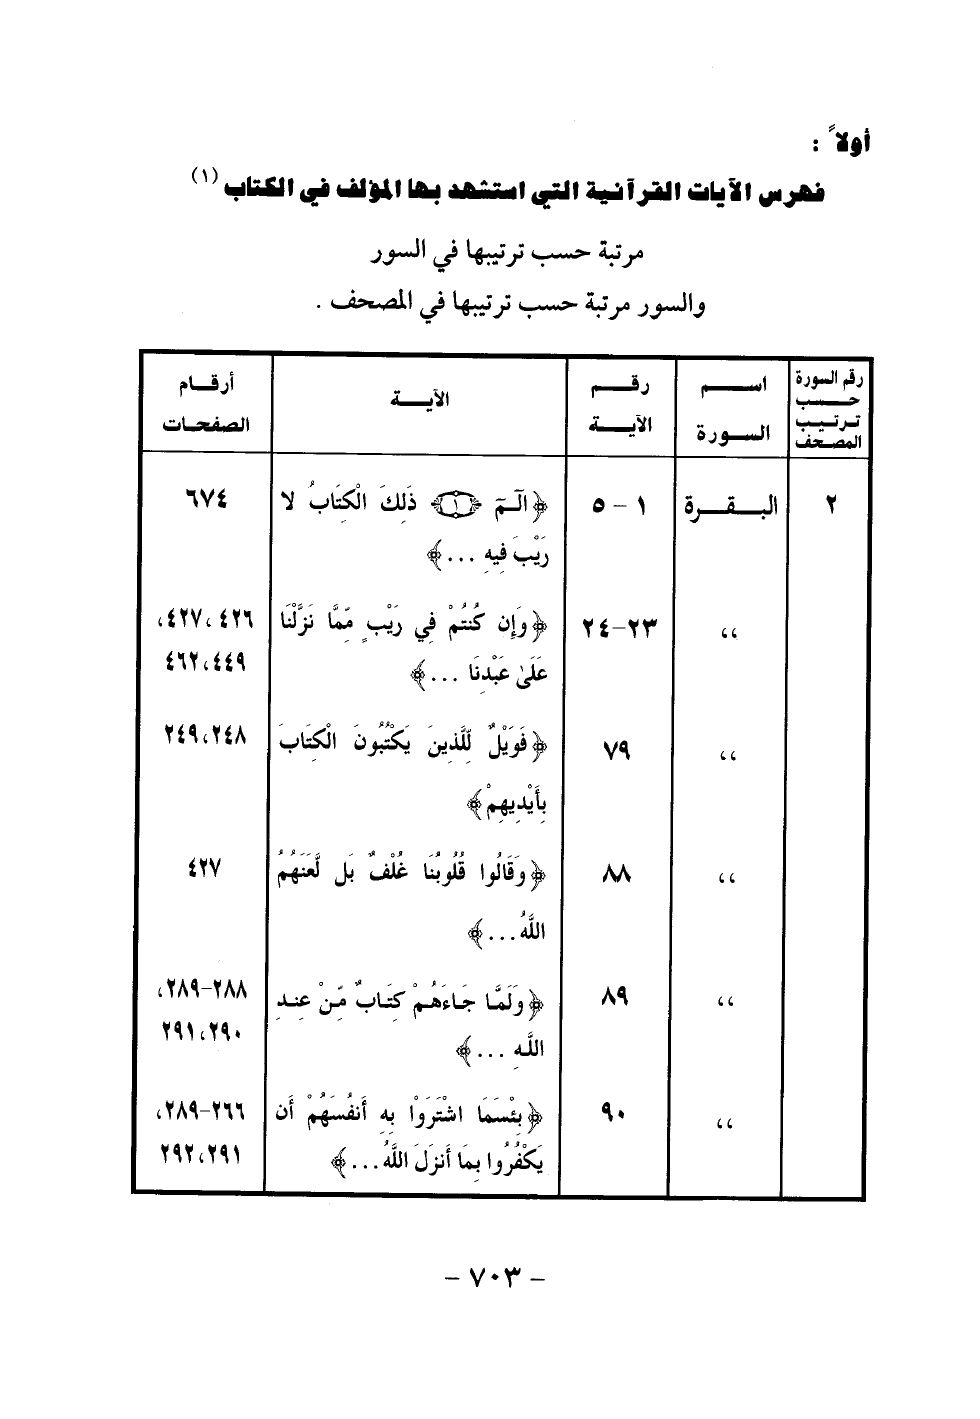 أولاً :
فهرس الآيات القرآنية التي استشهد بها المؤلف في الكتاب (١)
مرتبة حسب ترتيبها في السور
والسور مرتبة حسب ترتيبها في المصحف .
رقم السورة حسب ترتيب المصحف | اسم السورة | رقم الآية | الآية | أرقام الصفحات
٢ | البقرة | ١ – ٥ | ﴿الٓـمٓ ﴿١﴾ ذَلِكَ الْكِتَابُ لا | ٦٧٤
رَيْبَ فِيهِ ...﴾
،، | ٢٣–٢٤ | ﴿وَإِن كُنتُمْ فِي رَيْبٍ مِّمَّا نَزَّلْنَا | ٤٢٦ ،٤٢٧،
عَلَىٰ عَبْدِنَا ...﴾ | ٤٤٩،٤٦٢
،، | ٧٩ | ﴿فَوَيْلٌ لِّلَّذِينَ يَكْتُبُونَ الْكِتَابَ | ٢٤٨،٢٤٩
بِأَيْدِيهِمْ﴾
،، | ٨٨ | ﴿وَقَالُوا قُلُوبُنَا غُلْفٌ بَل لَّعَنَهُمُ | ٤٢٧
اللَّهُ...﴾
،، | ٨٩ | ﴿وَلَمَّا جَاءَهُمْ كِتَابٌ مِّنْ عِندِ | ٢٨٨–٢٨٩،
اللَّهِ ...﴾ | ٢٩٠،٢٩١
،، | ٩٠ | ﴿بِئْسَمَا اشْتَرَوْا بِهِ أَنفُسَهُمْ أَن | ٢٦٦–٢٨٩،
يَكْفُرُوا بِمَا أَنزَلَ اللَّهُ...﴾ | ٢٩١،٢٩٢
– ٧٠٣ –